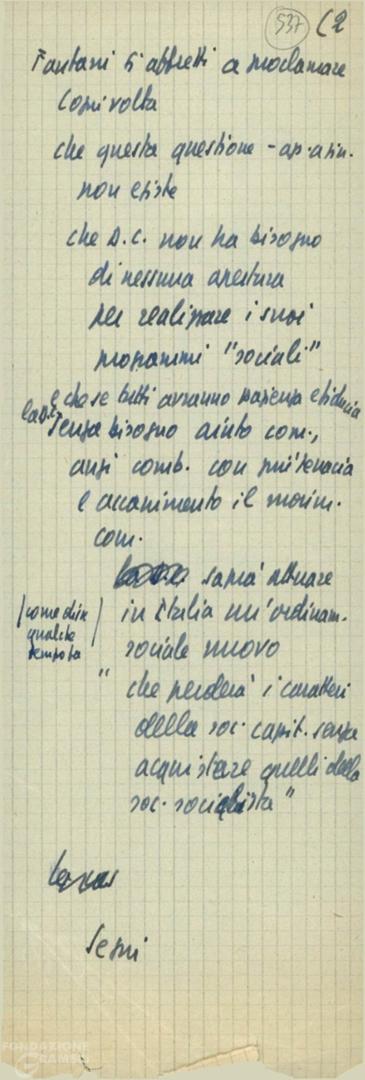 537 (2
Fanfani si affretti a proclamare
ogni volta
che questa questione - ap. a sin.
non esiste
che D.C. non ha bisogno
di nessuna apertura
per realizzare i suoi
programmi "sociali"
e che se tutti avranno pazienza e fiducia
la D.C. senza bisogno aiuto com.,
anzi comb. con più tenacia
e accanimento il movim.
com.
saprà attuare
(come din
qualche
tempo fa)
in Italia un'ordinam.
sociale nuovo
" che perderà i caratteri
della soc. capit. senza
acquistare quelli della
soc. socialista"
Segni
FONDAZIONE
GRAMSCI